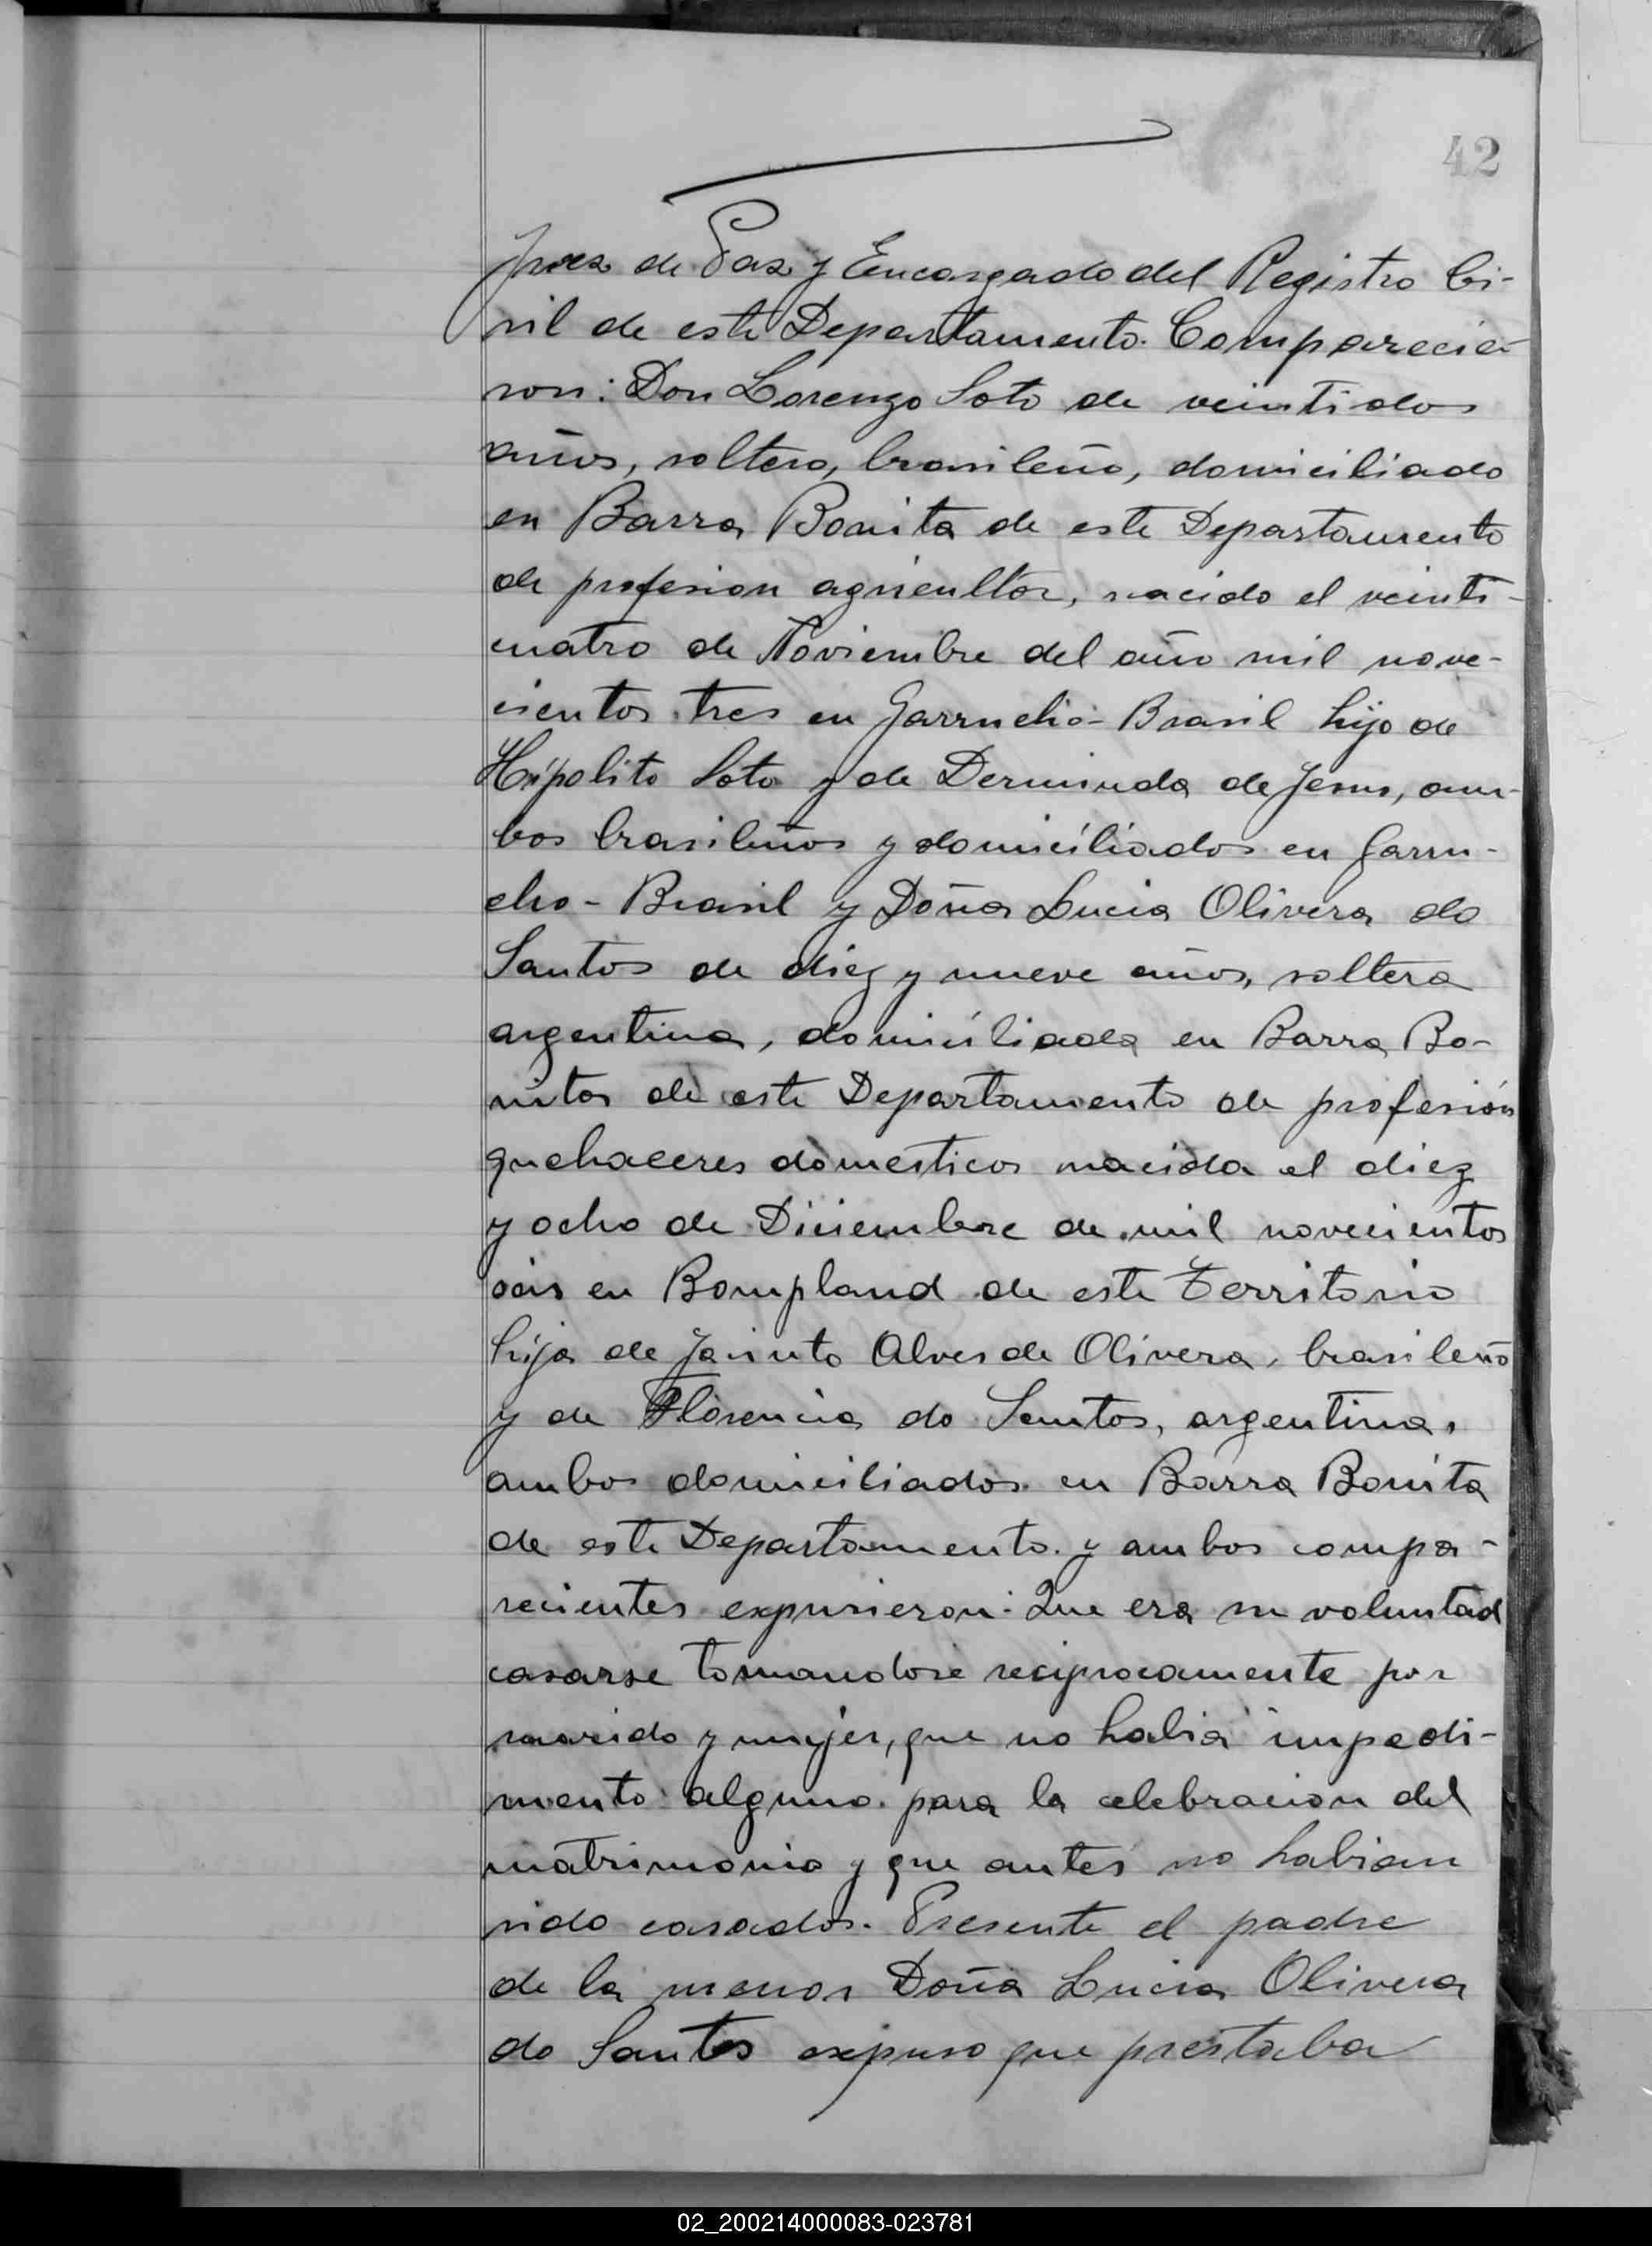 42
Juez de Paz y Encargado del Registro Ci-
vil de este Departamento. Comparecie-
ron: Don Lorenzo Soto de veintidos
años, soltero, brasileño, domiciliado
en Barra Bonita de este Departamento
de profesion agricultor, nacido el veinti-
cuatro de Noviembre del año mil nove-
cientos tres en Garrucho- Brasil hijo de
Hipolito Soto y de Derminda de Jesus, am-
bos brasileños y domiciliados en Garru-
cho - Brasil y Doña Lucia Olivera do
Santos de diez y nueve años, soltera
argentina, domiciliada en Barra Bo-
nita de este Departamento de profesión
quehaceres domesticos nacida el diez
y ocho de Diciembre de mil novecientos
seis en Bompland de este Territorio
hija de Jacinto Alves de Olivera, brasileño
y de Florencia do Santos, argentina,
ambos domiciliados en Barra Bonita
de este Departamento. y ambos compa-
recientes expusieron: Que era su voluntad
casarse tomandose reciprocamente por
marido y mujer, que no habia impedi-
mento alguno para la celebracion del
matrimonio y que antes no habian
sido casados. Presente el padre
de la menor Doña Lucia Olivera
do Santos expuso que prestaba
02_200214000083-023781